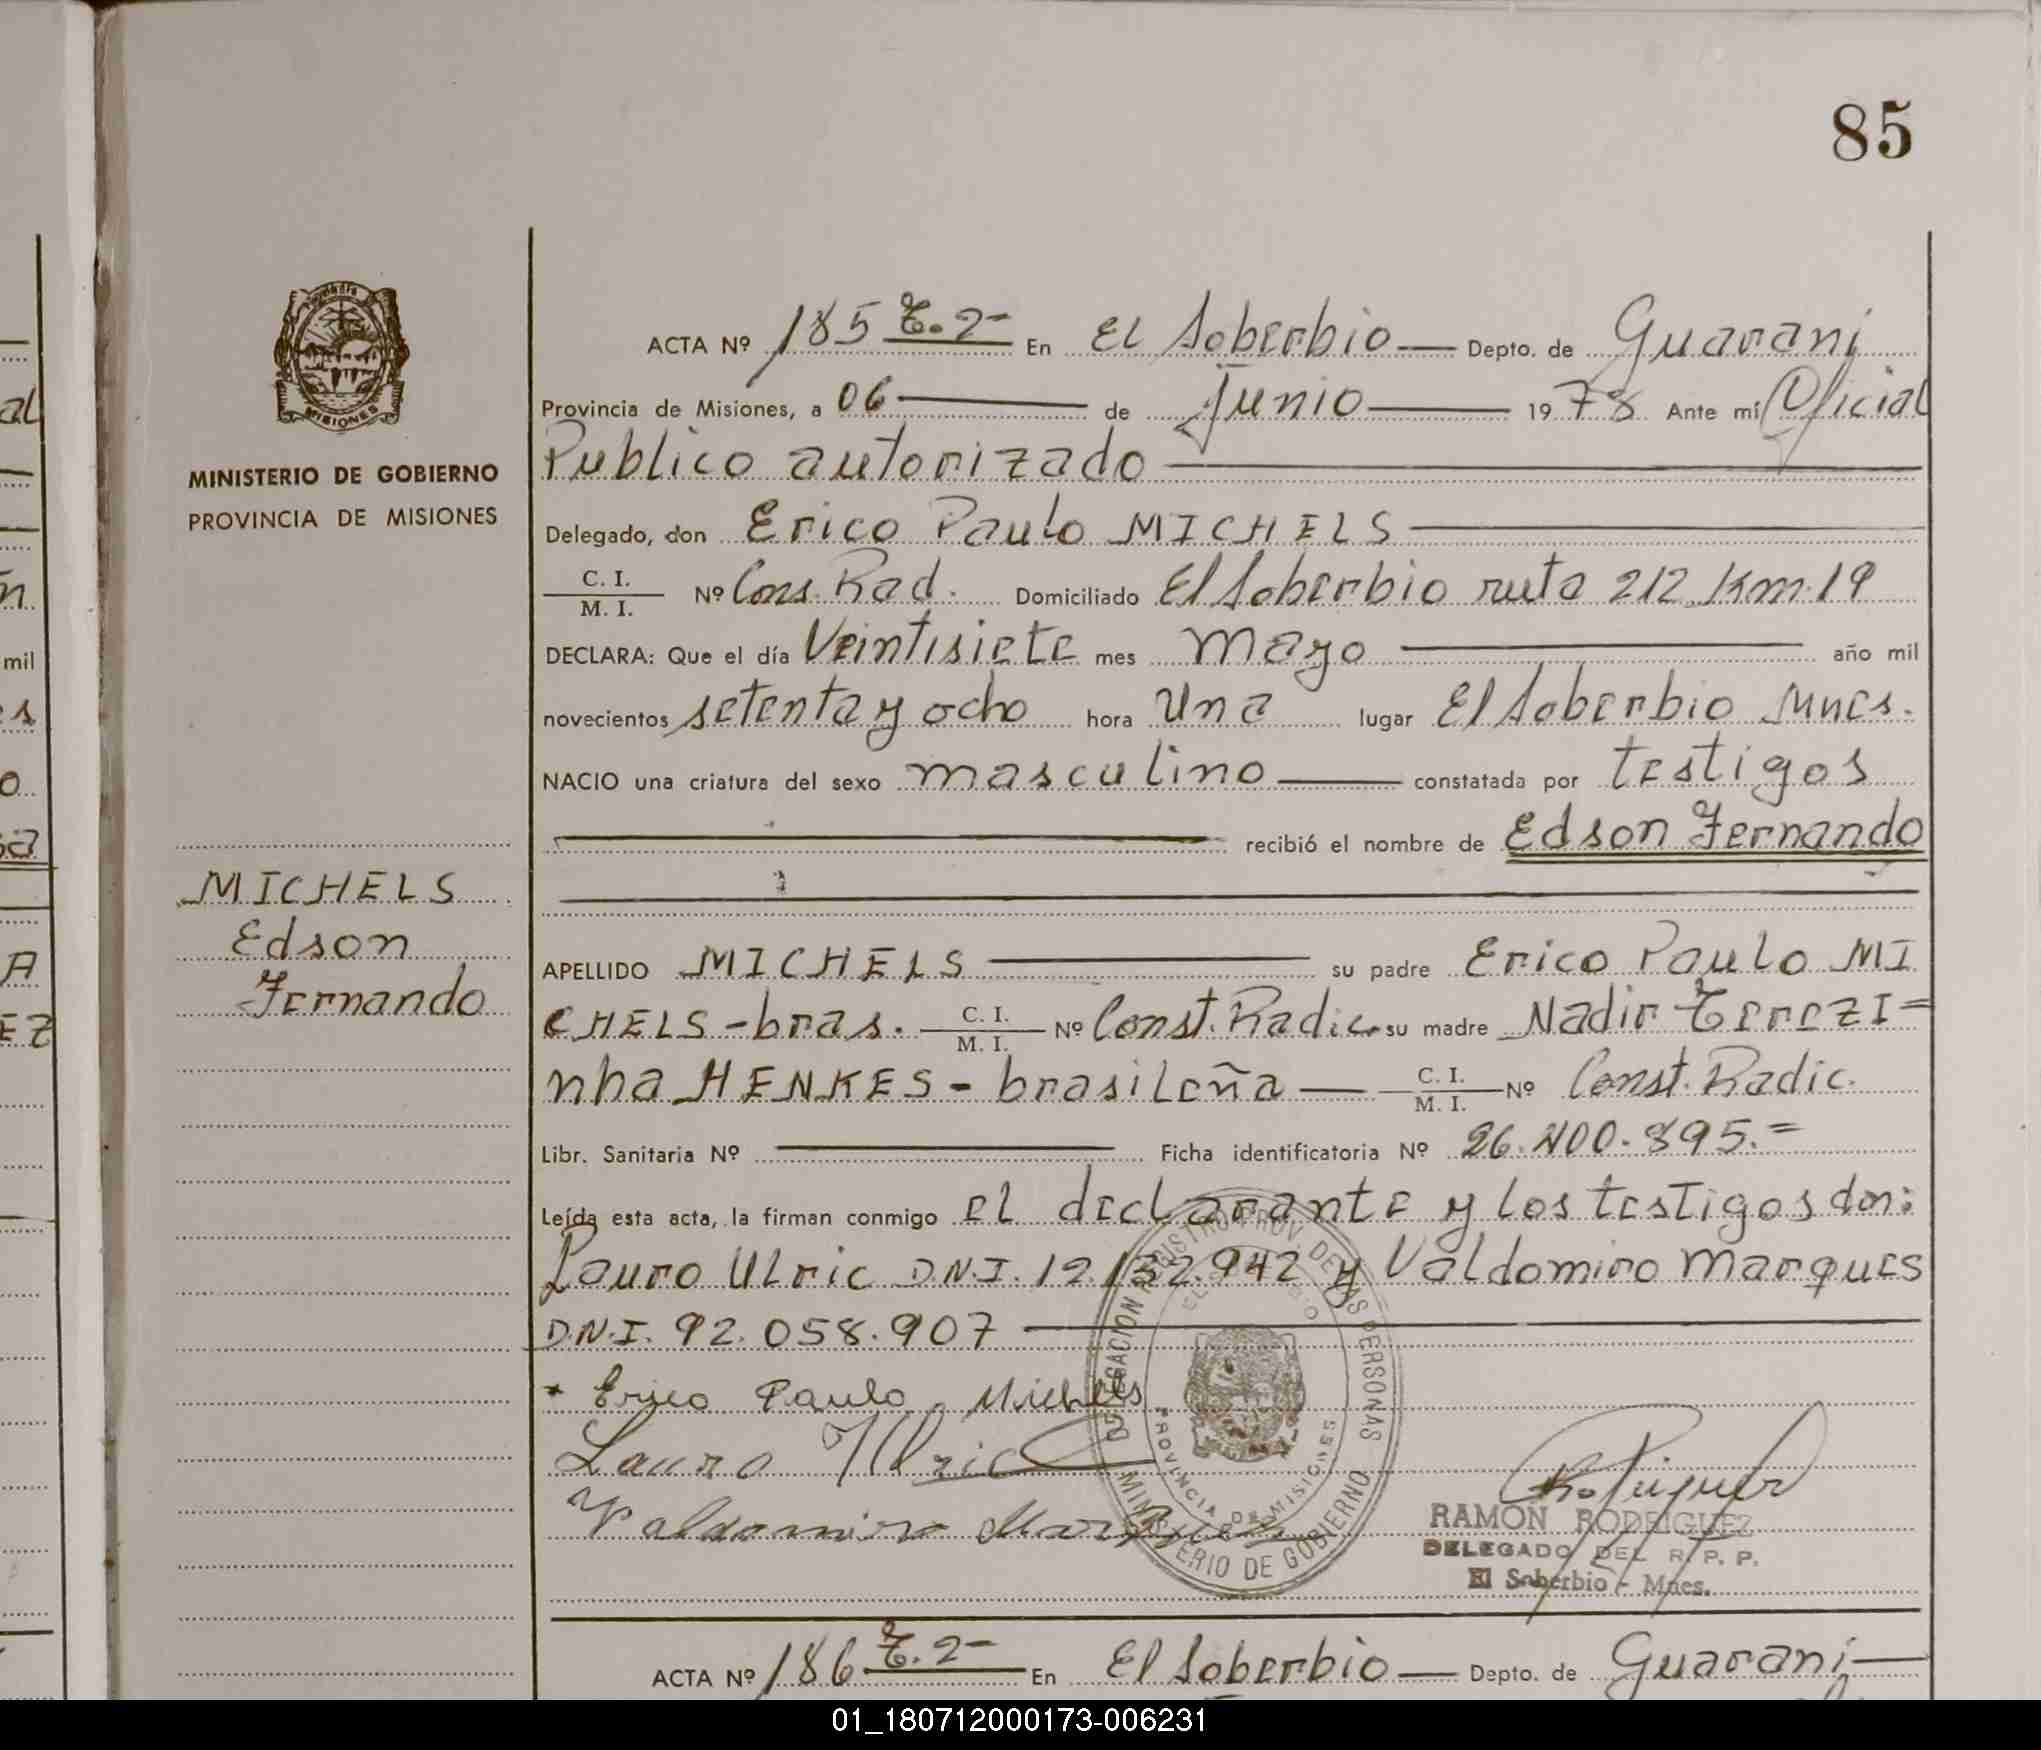 85
ACTA Nº 185 T.2- En El Soberbio Depto. de Guaraní
Provincia de Misiones, a 06 de Junio 1978 Ante mí Oficial
Publico autorizado
MINISTERIO DE GOBIERNO
PROVINCIA DE MISIONES
Delegado, don Erico Paulo MICHELS
C. I.
M. I. Nº Cons. Rad. Domiciliado El Soberbio ruta 212 Km. 19
DECLARA: Que el día Veintisiete mes Mayo año mil
novecientos setenta y ocho hora Una lugar El Soberbio Mnes.
NACIO una criatura del sexo masculino constatada por testigos
recibió el nombre de Edson Fernando
MICHELS
Edson
Fernando
APELLIDO MICHELS su padre Erico Paulo MI
CHELS - bras. C. I. M. I. Nº Const. Radic. su madre Nadir TerezI=
nha HENKES - brasileña C. I. M. I. Nº Const. Radic.
Libr. Sanitaria Nº Ficha identificatoria Nº 26.400.895.=
Leída esta acta, la firman conmigo el declarante y los testigos don:
Lauro Ulric D.N.I. 12.132.942 y Valdomiro Marques
D.N.I. 92.058.907
Erico Paulo Michels
Lauro Ulric
Valdomiro Marques
DELEGACION REGISTRO PROV. DE LAS PERSONAS
EL SOBERBIO
PROVINCIA DE MISIONES
MINISTERIO DE GOBIERNO
RAMON RODRIGUEZ
DELEGADO DEL R. P. P.
El Soberbio - Mnes.
ACTA Nº 186 T.2- En El Soberbio Depto. de Guaraní
01_180712000173-006231